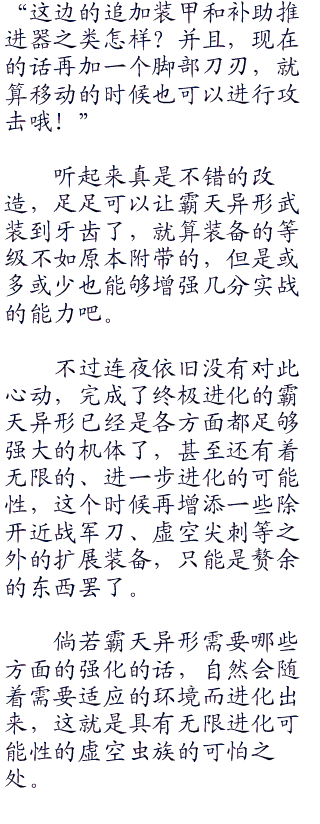 “这边的追加装甲和补助推
进器之类怎样？并且，现在
的话再加一个脚部刀刃，就
算移动的时候也可以进行攻
击哦！”
听起来真是不错的改
造，足足可以让霸天异形武
装到牙齿了，就算装备的等
级不如原本附带的，但是或
多或少也能够增强几分实战
的能力吧。
不过连夜依旧没有对此
心动，完成了终极进化的霸
天异形已经是各方面都足够
强大的机体了，甚至还有着
无限的、进一步进化的可能
性，这个时候再增添一些除
开近战军刀、虚空尖刺等之
外的扩展装备，只能是赘余
的东西罢了。
倘若霸天异形需要哪些
方面的强化的话，自然会随
着需要适应的环境而进化出
来，这就是具有无限进化可
能性的虚空虫族的可怕之
处。